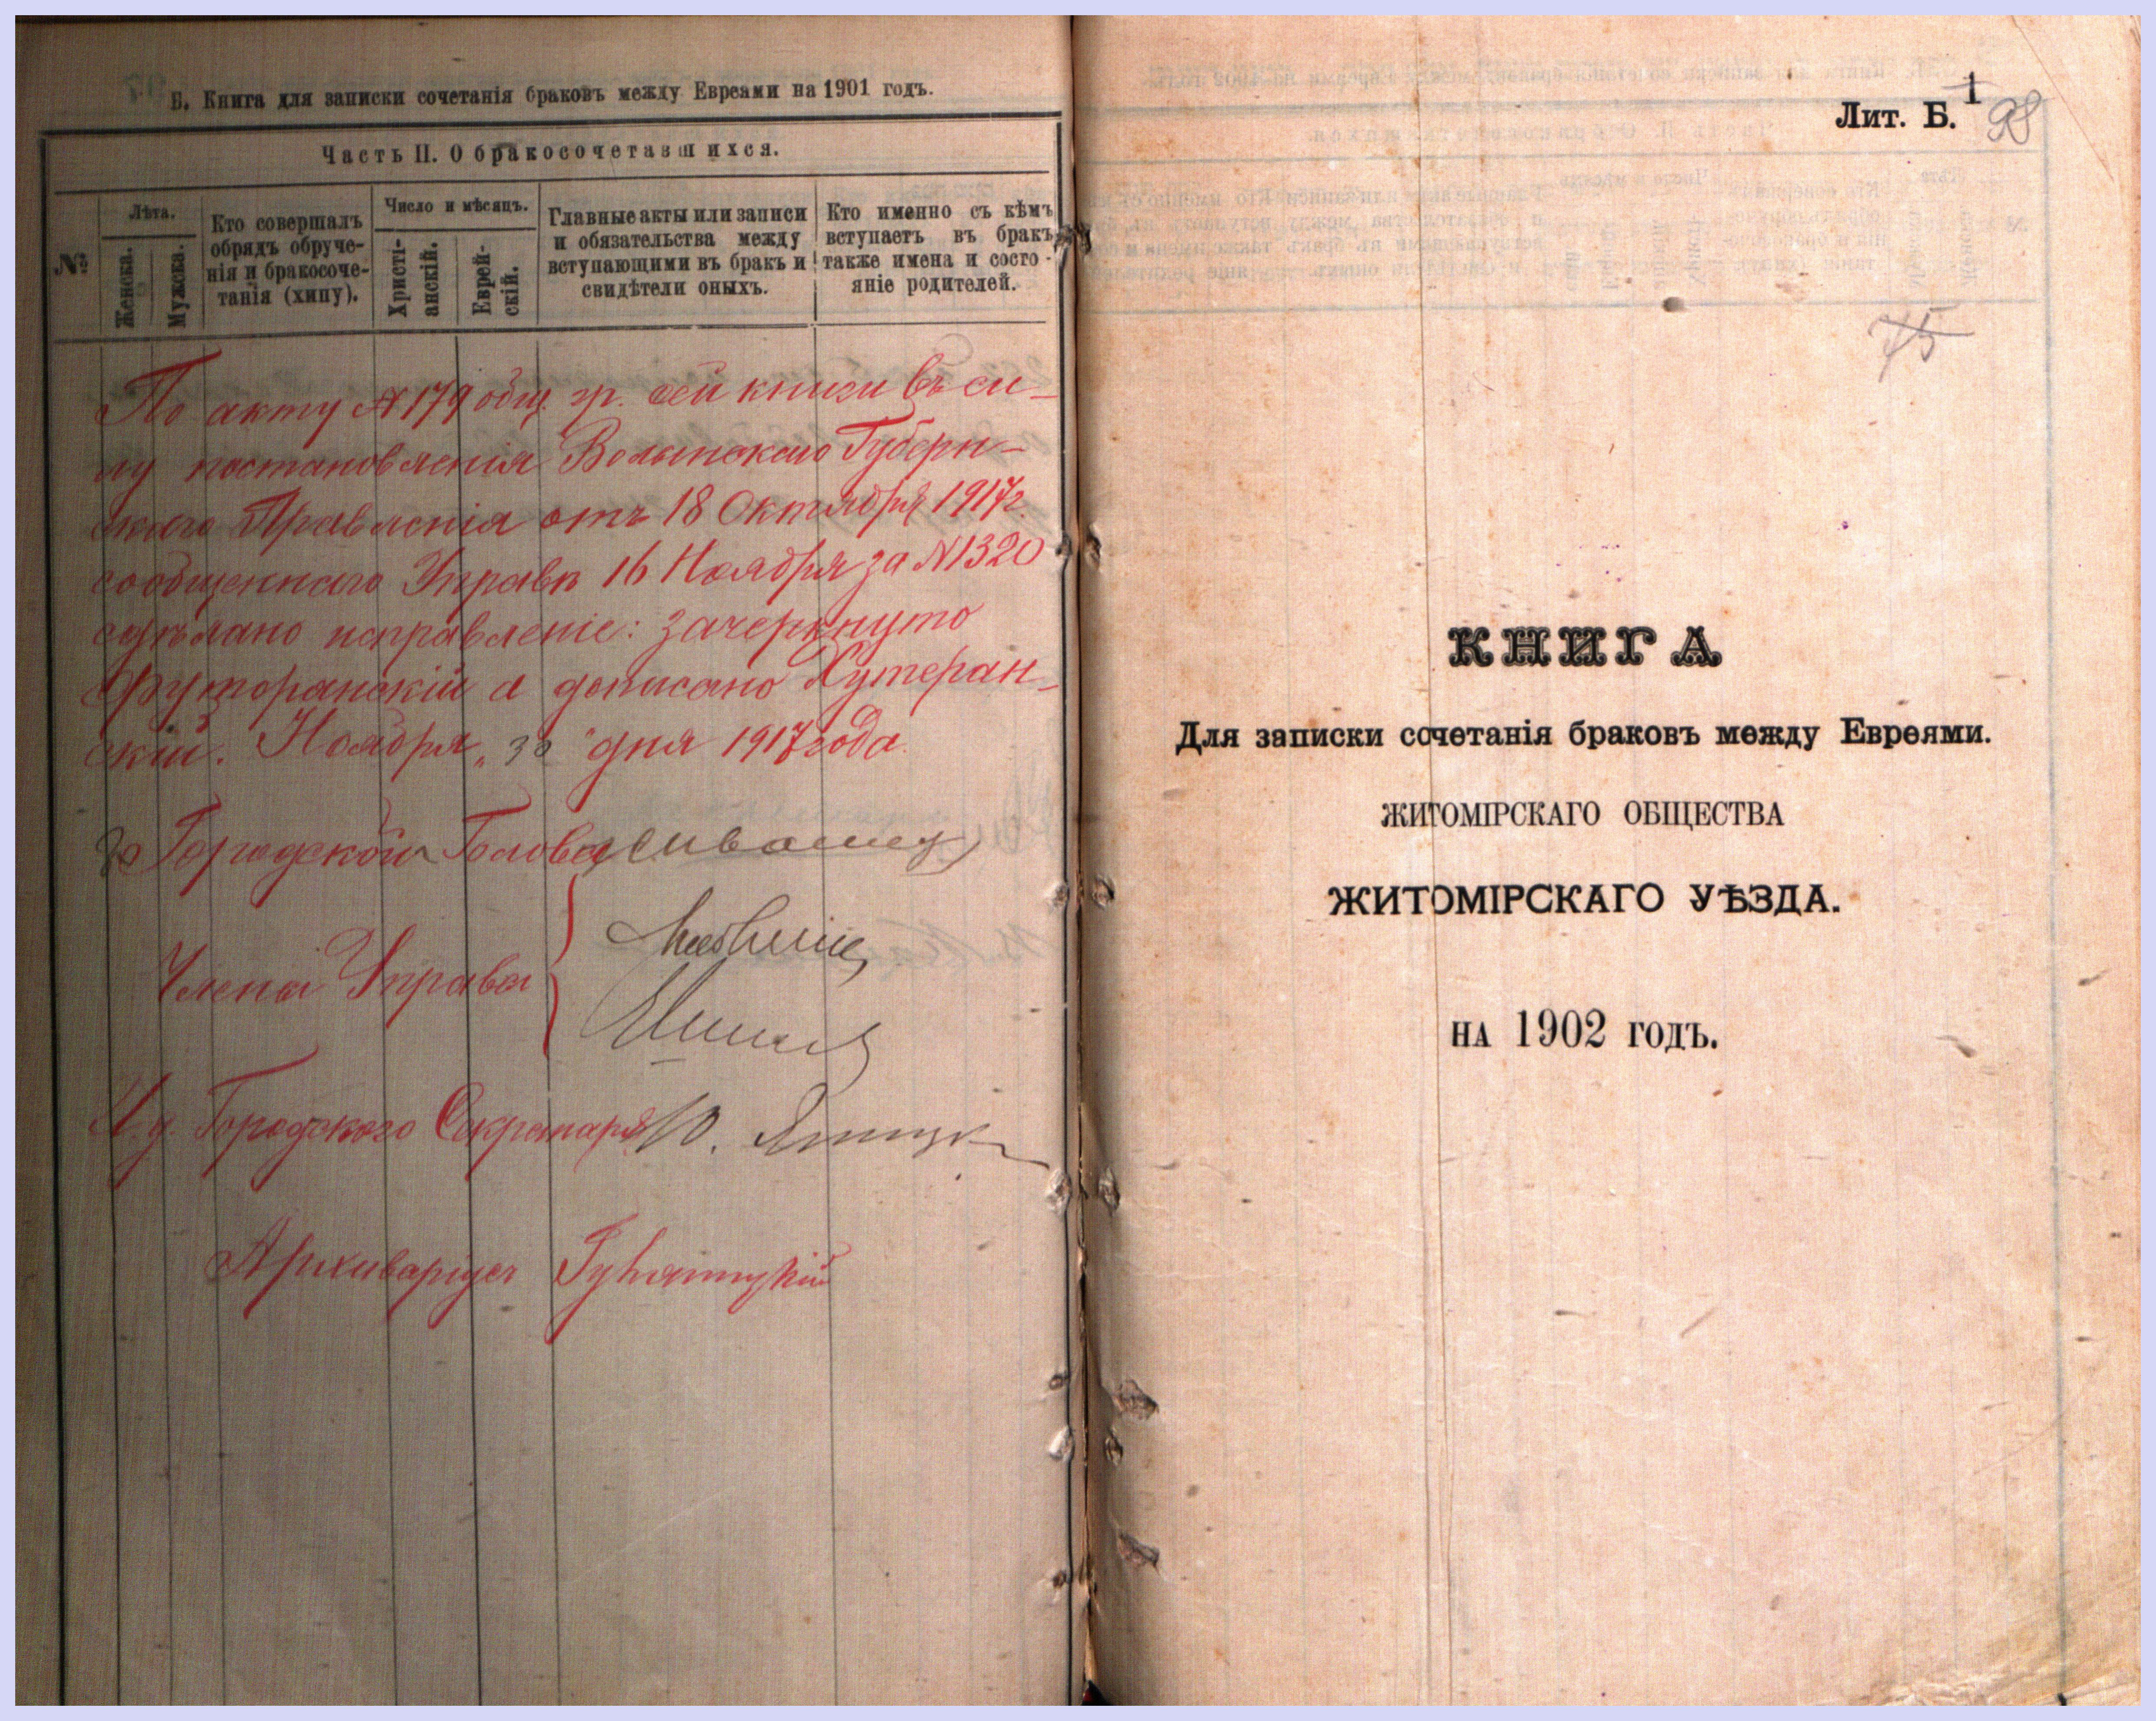 Б. Книга для записки сочетанія браковъ между Евреями на 1901 годъ.
Часть II. О бракосочетавшихся.
№
Лѣта.
Женска.
Мужска.
Кто совершалъ
обрядъ обруче-
нія и бракосоче-
танія (хипу).
Число и мѣсяцъ.
Христі-
анскій.
Еврей-
скій.
Главные акты или записи
и обязательства между
вступающими въ бракъ и
свидѣтели оныхъ.
Кто именно съ кѣмъ
вступаетъ въ бракъ
также имена и состо-
яніе родителей.
По акту № 179 общ. гр. сей книги въ си-
лу постановленія Волынскаго Губерн-
скаго Правленія отъ 18 Октября 1917 г.
сообщеннаго Управѣ 16 Ноября за № 1320
сдѣлано исправленіе: зачеркнуто
а дописано Хутеран-
скій. Ноября „30" дня 1917 года.
Городской Голова
Члены Управы
И. д. Городского Секретаря
Архиваріусъ
Лит. Б.
1
98
75
КНИГА
Для записки сочетанія браковъ между Евреями.
ЖИТОМІРСКАГО ОБЩЕСТВА
ЖИТОМІРСКАГО УѢЗДА.
НА 1902 ГОДЪ.